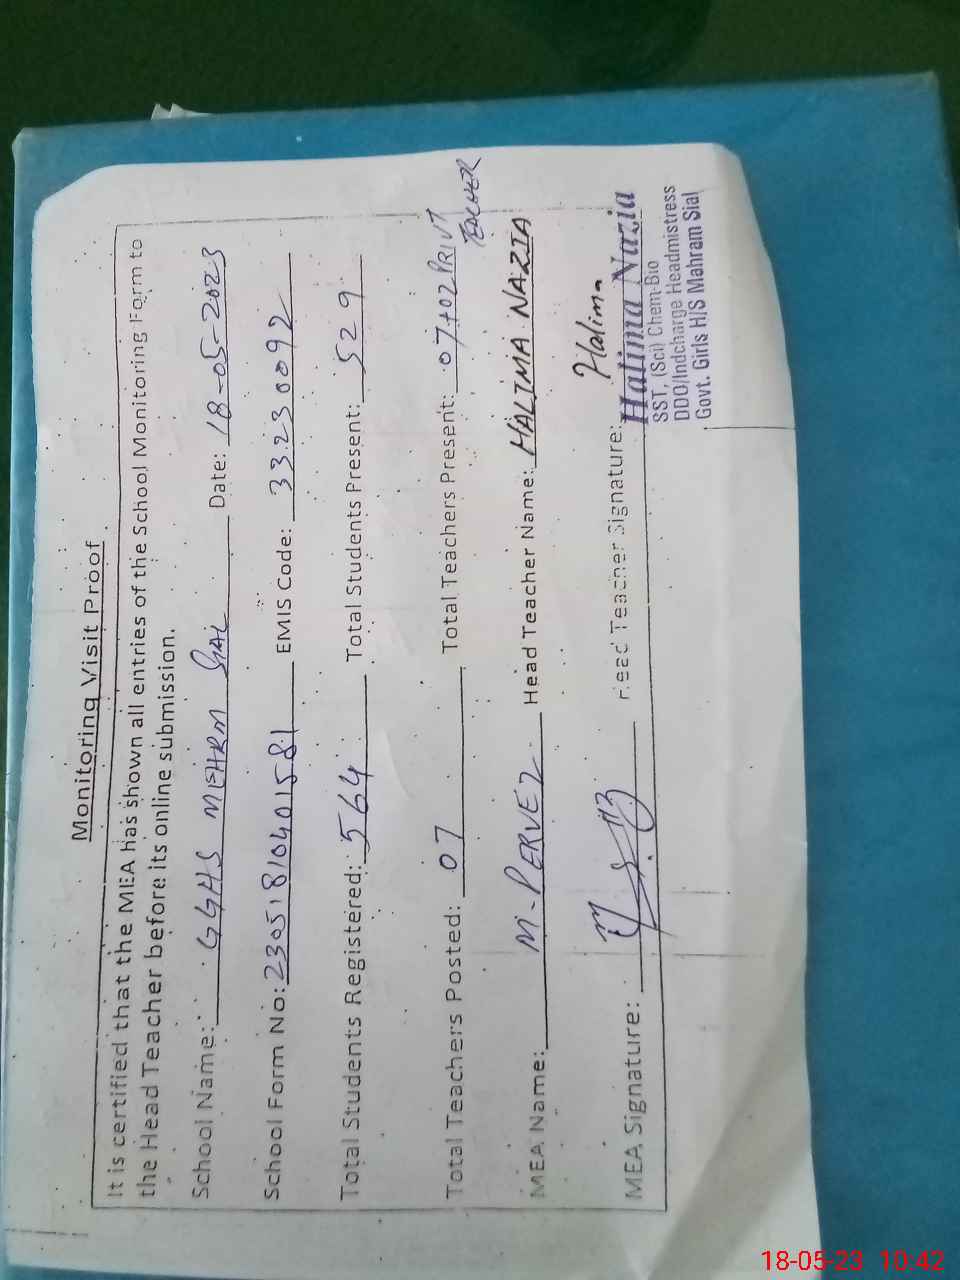 Monitoring Visit Proof
It is certified that the MEA has shown all entries of the School Monitoring Form to
the Head Teacher before its online submission.
School Name: GGHS MEHRM SIAL Date: 18-05-2023
School Form No: 23051810401581 EMIS Code: 33230092
Total Students Registered: 564 Total Students Present: 529
Total Teachers Posted: 07 Total Teachers Present: 07+02 PRIVT
TEACHER
MEA Name: M. PERVEZ Head Teacher Name: HALIMA NAZIA
MEA Signature: Head Teacher Signature: Halima
Halima Nazia
SST, (Sci) Chem-Bio
DDO/Indcharge Headmistress
Govt. Girls H/S Mahram Sial
18-05-23 10:42